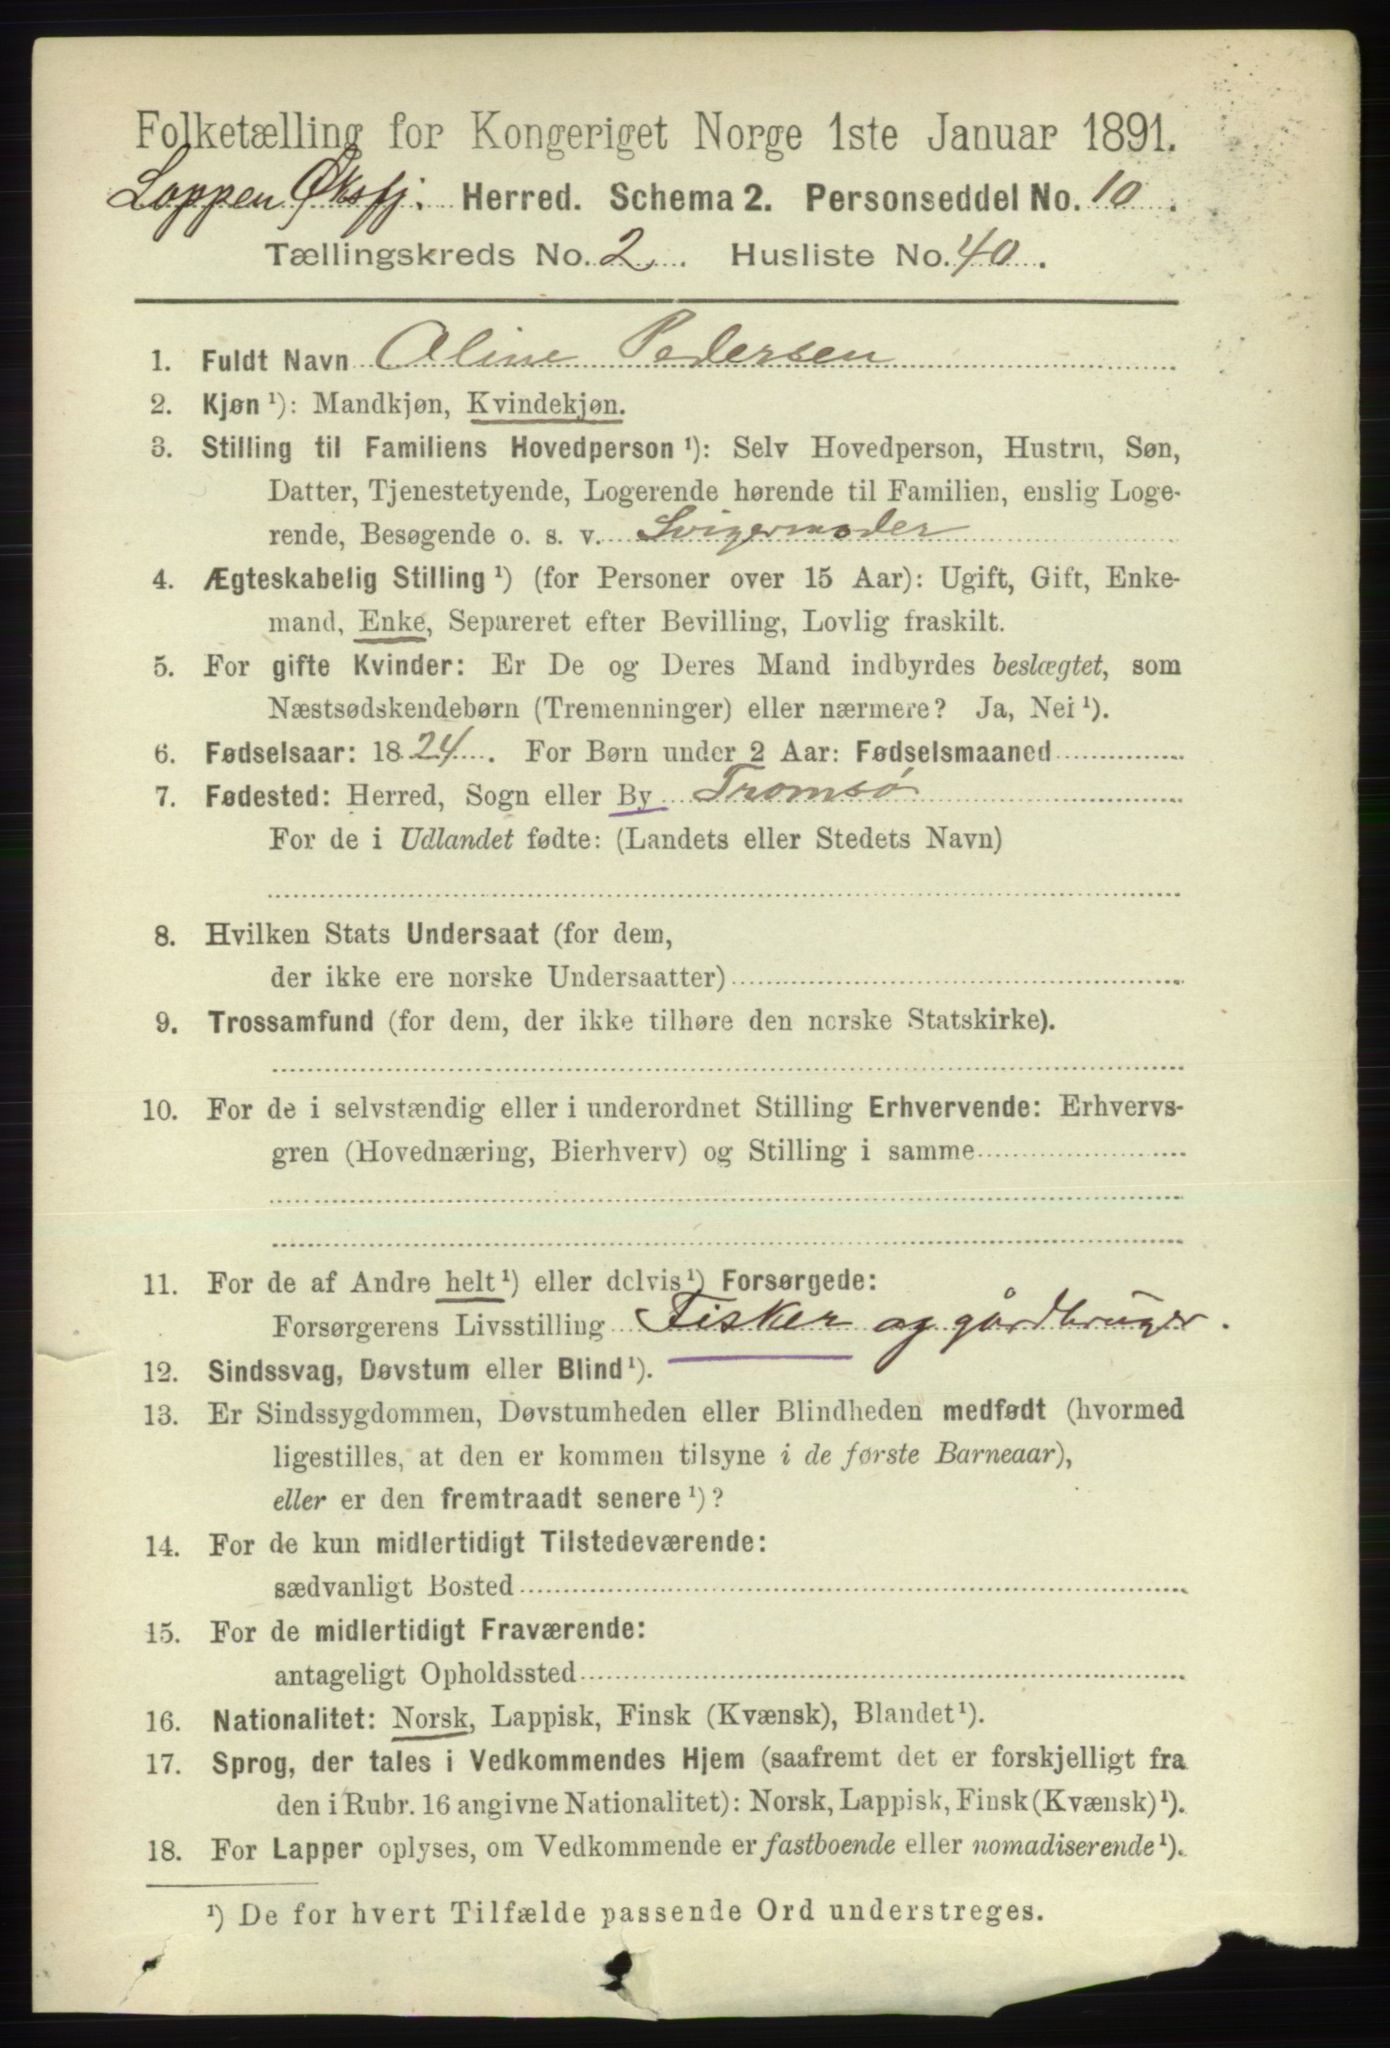 Folketælling for Kongeriget Norge 1ste Januar 1891.
Loppen Øksfj. Herred. Schema 2. Personseddel No. 10.
Tællingskreds No. 2. Husliste No. 40.
1. Fuldt Navn Oline Pedersen
2. Kjøn ¹): Mandkjøn, Kvindekjøn.
3. Stilling til Familiens Hovedperson ¹): Selv Hovedperson, Hustru, Søn,
Datter, Tjenestetyende, Logerende hørende til Familien, enslig Loge-
rende, Besøgende o. s. v. Svigermoder
4. Ægteskabelig Stilling ¹) (for Personer over 15 Aar): Ugift, Gift, Enke-
mand, Enke, Separeret efter Bevilling, Lovlig fraskilt.
5. For gifte Kvinder: Er De og Deres Mand indbyrdes beslægtet, som
Næstsødskendebørn (Tremenninger) eller nærmere? Ja, Nei ¹).
6. Fødselsaar: 1824. For Børn under 2 Aar: Fødselsmaaned
7. Fødested: Herred, Sogn eller By Tromsø
For de i Udlandet fødte: (Landets eller Stedets Navn)
8. Hvilken Stats Undersaat (for dem,
der ikke ere norske Undersaatter)
9. Trossamfund (for dem, der ikke tilhøre den norske Statskirke).
10. For de i selvstændig eller i underordnet Stilling Erhvervende: Erhvervs-
gren (Hovednæring, Bierhverv) og Stilling i samme
11. For de af Andre helt ¹) eller delvis ¹) Forsørgede:
Forsørgerens Livsstilling Fisker og gårdbruger.
12. Sindssvag, Døvstum eller Blind ¹).
13. Er Sindssygdommen, Døvstumheden eller Blindheden medfødt (hvormed
ligestilles, at den er kommen tilsyne i de første Barneaar),
eller er den fremtraadt senere ¹)?
14. For de kun midlertidigt Tilstedeværende:
sædvanligt Bosted
15. For de midlertidigt Fraværende:
antageligt Opholdssted
16. Nationalitet: Norsk, Lappisk, Finsk (Kvænsk), Blandet ¹).
17. Sprog, der tales i Vedkommendes Hjem (saafremt det er forskjelligt fra
den i Rubr. 16 angivne Nationalitet): Norsk, Lappisk, Finsk (Kvænsk) ¹).
18. For Lapper oplyses, om Vedkommende er fastboende eller nomadiserende ¹).
¹) De for hvert Tilfælde passende Ord understreges.